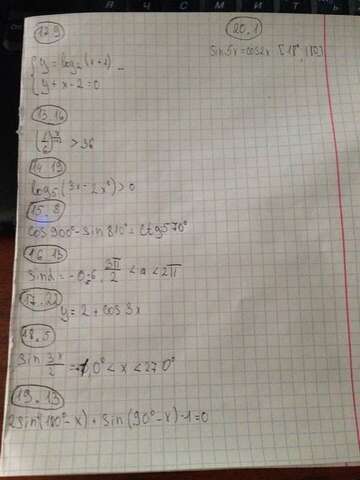 12.9
{ y = log₂ (x+2)
{ y + x - 2 = 0
13.16
(1/6) > 36
14.19
log₅ (3x - 2x²) > 0
15.8
cos 900° - sin 810° - ctg 570°
16.13
sin α = -0,6, 3π/2 < α < 2π
17.22
y = 2 + cos 3x
18.5
sin 3x/2 = , 0° < x < 270°
19.13
2sin²(180° - x) + sin(90° - x) - 1 = 0
20.1
sin 5x = cos 2x